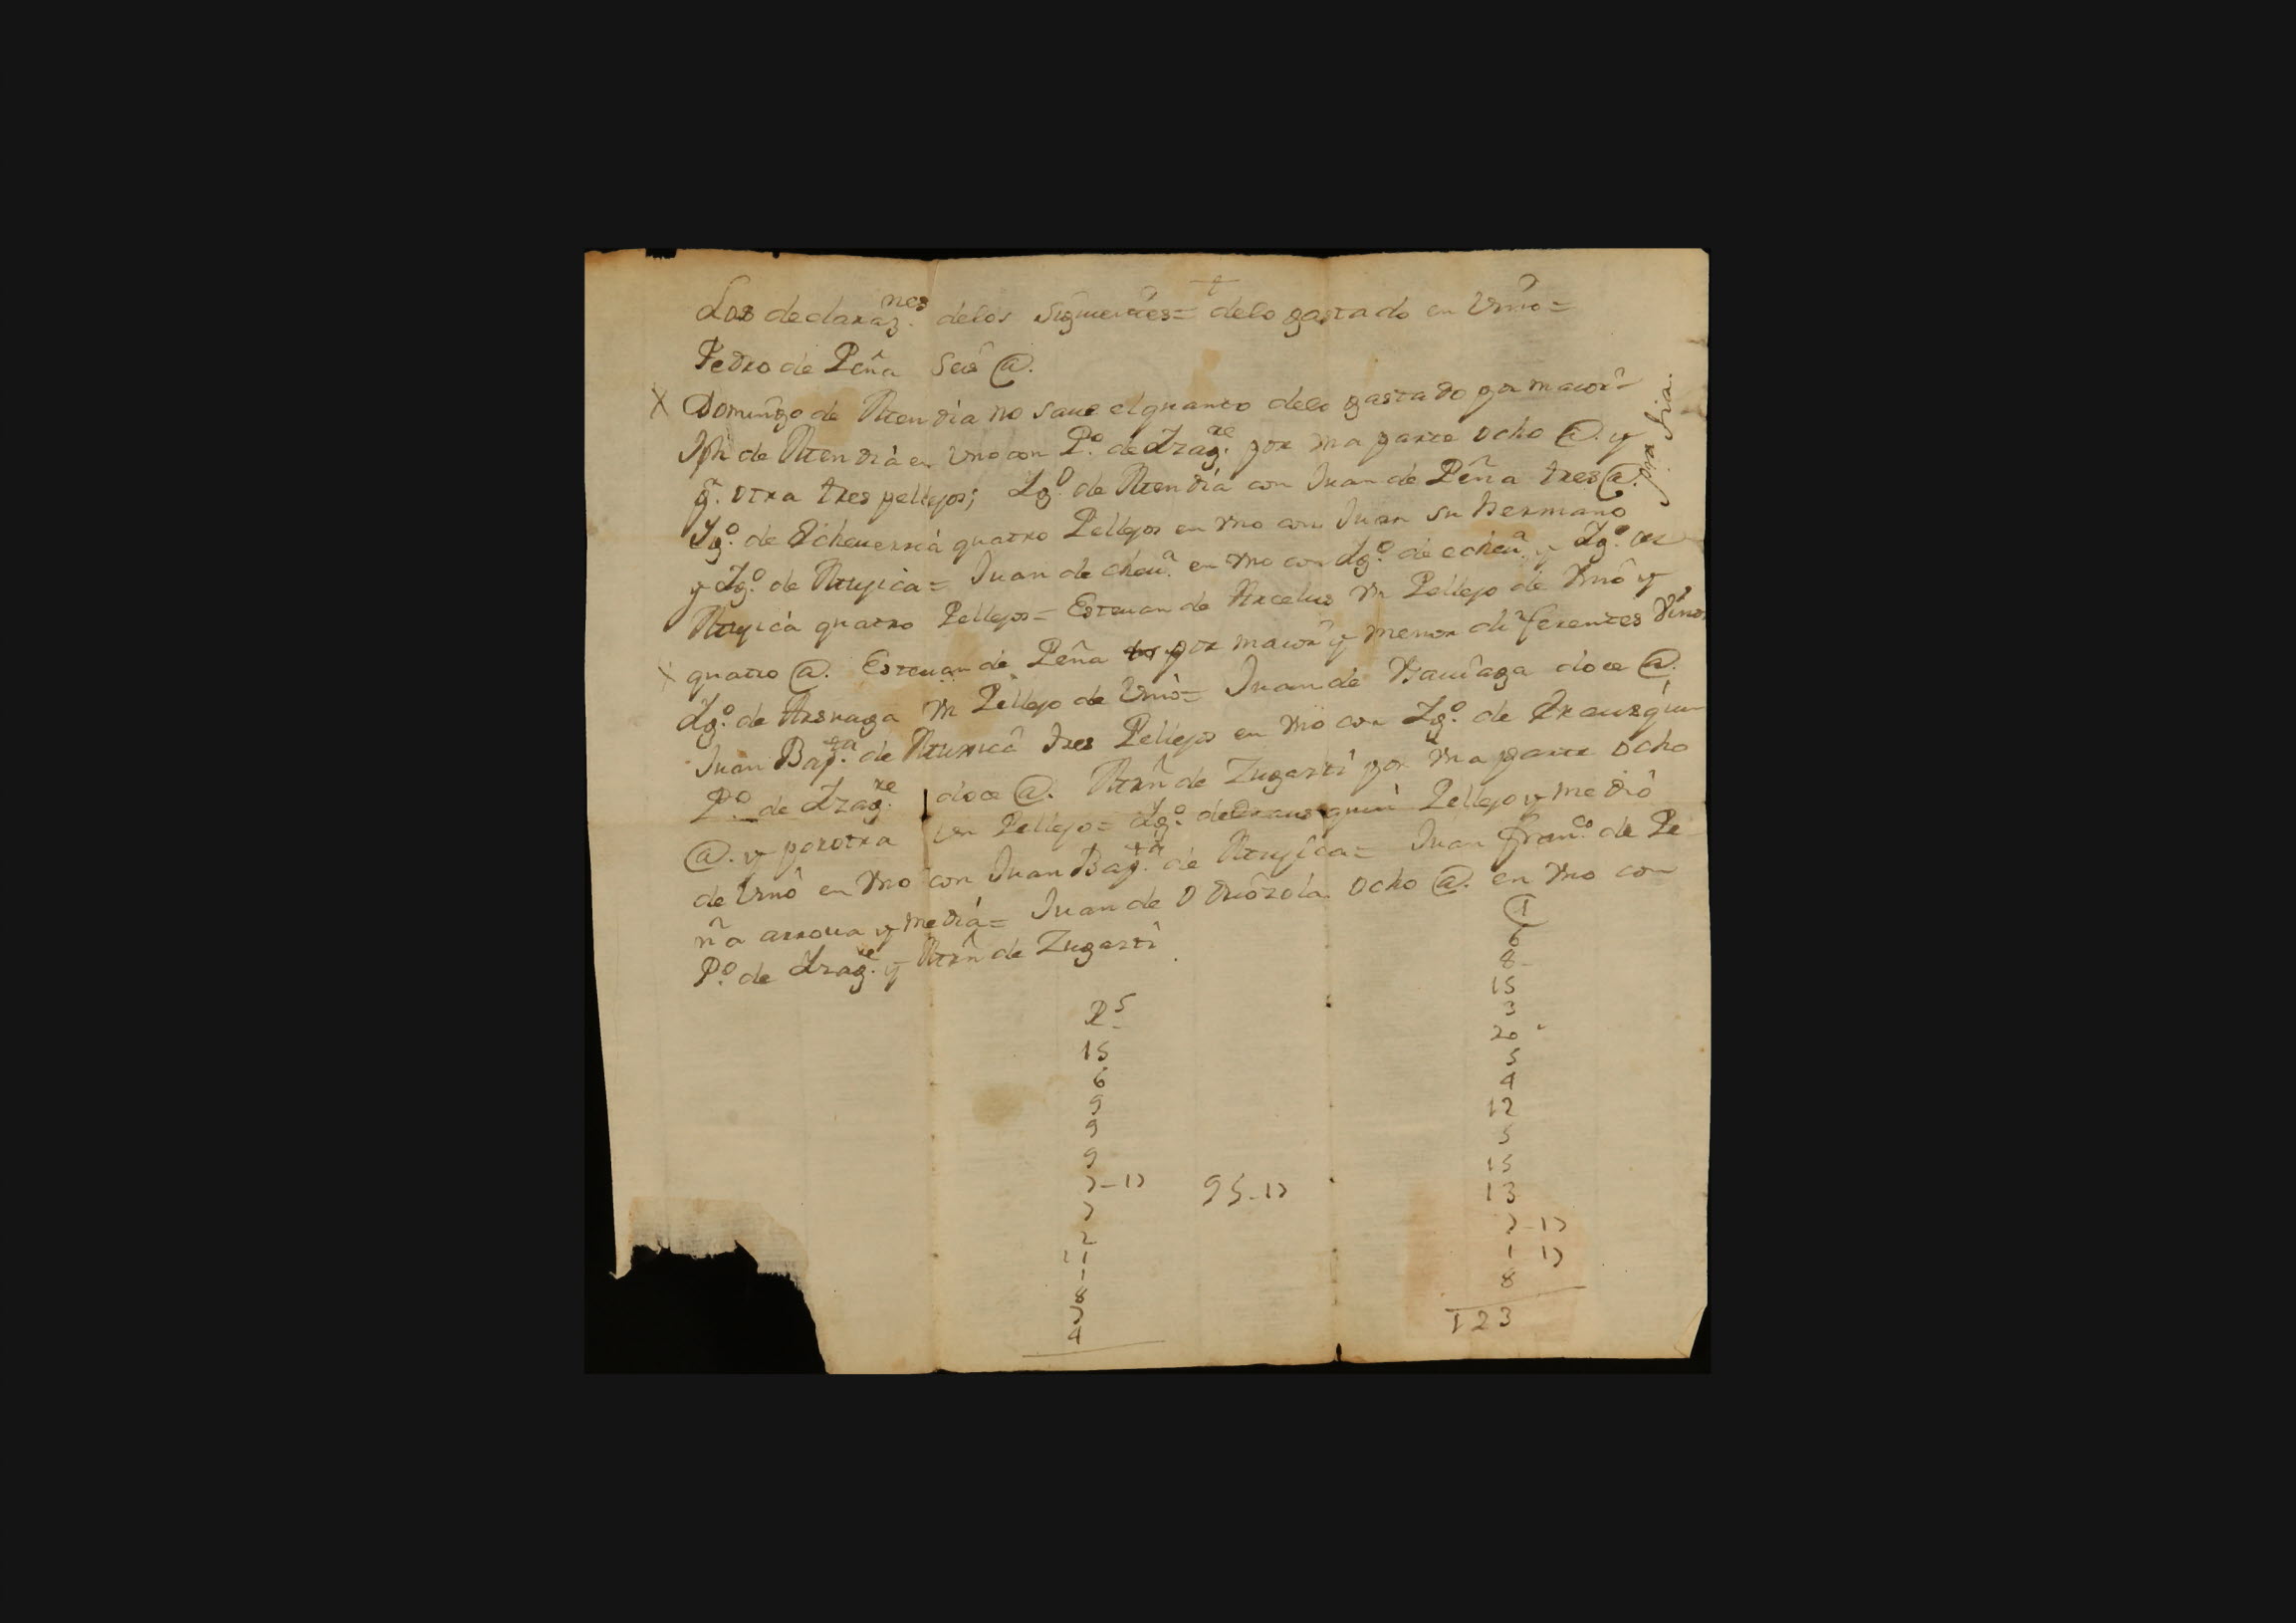 t
Los declaraz.nes delos Siguientes= delo gastado en Vino=
Pedro de Peña Seis @.
X Domingo de Atendia no saue el quanto delo gastado por maior
Jph de Atendia en Vno con P.o de Izag.re por vna parte ocho @. y
p.r otra tres pellejos; Ig.o de Atendia con Juan de Peña tres @.
Ig.o de Echeuerria quatro Pellejos en vno con Juan su hermano
y Ig.o de = Juan de cheu.a en vno con Ig.o de echeu.a y Ig.o de
quatro Pellejos = Esteuan de Arcelus vn Pellejo de Vino y
X quatro @. Esteuan de Peña por maior y menor diferentes Vinos
Ig.o de vn Pellejo de Vino= Juan de doce @.
Juan Bap.ta de tres Pellejos en vno con Ig.o de
P.o de Izag.re doce @. Atñ de Zugasti por vna parte ocho
@. y por otra vn Pellejo= Ig.o de Pellejo y medio
de Vino en vno con Juan Bap.ta de = Juan Fran.co de Pe
ña arroua y media= Juan de Odriozola ocho @. en vno con
P.o de Izag.re y Atñ de Zugasti
25
15
6
9
9
9
7-17
7
2
11
1
8
7
4
95-17
@
6
8-
15
3
20
5
4
12
5
15
13
7-17
1 17
8
123